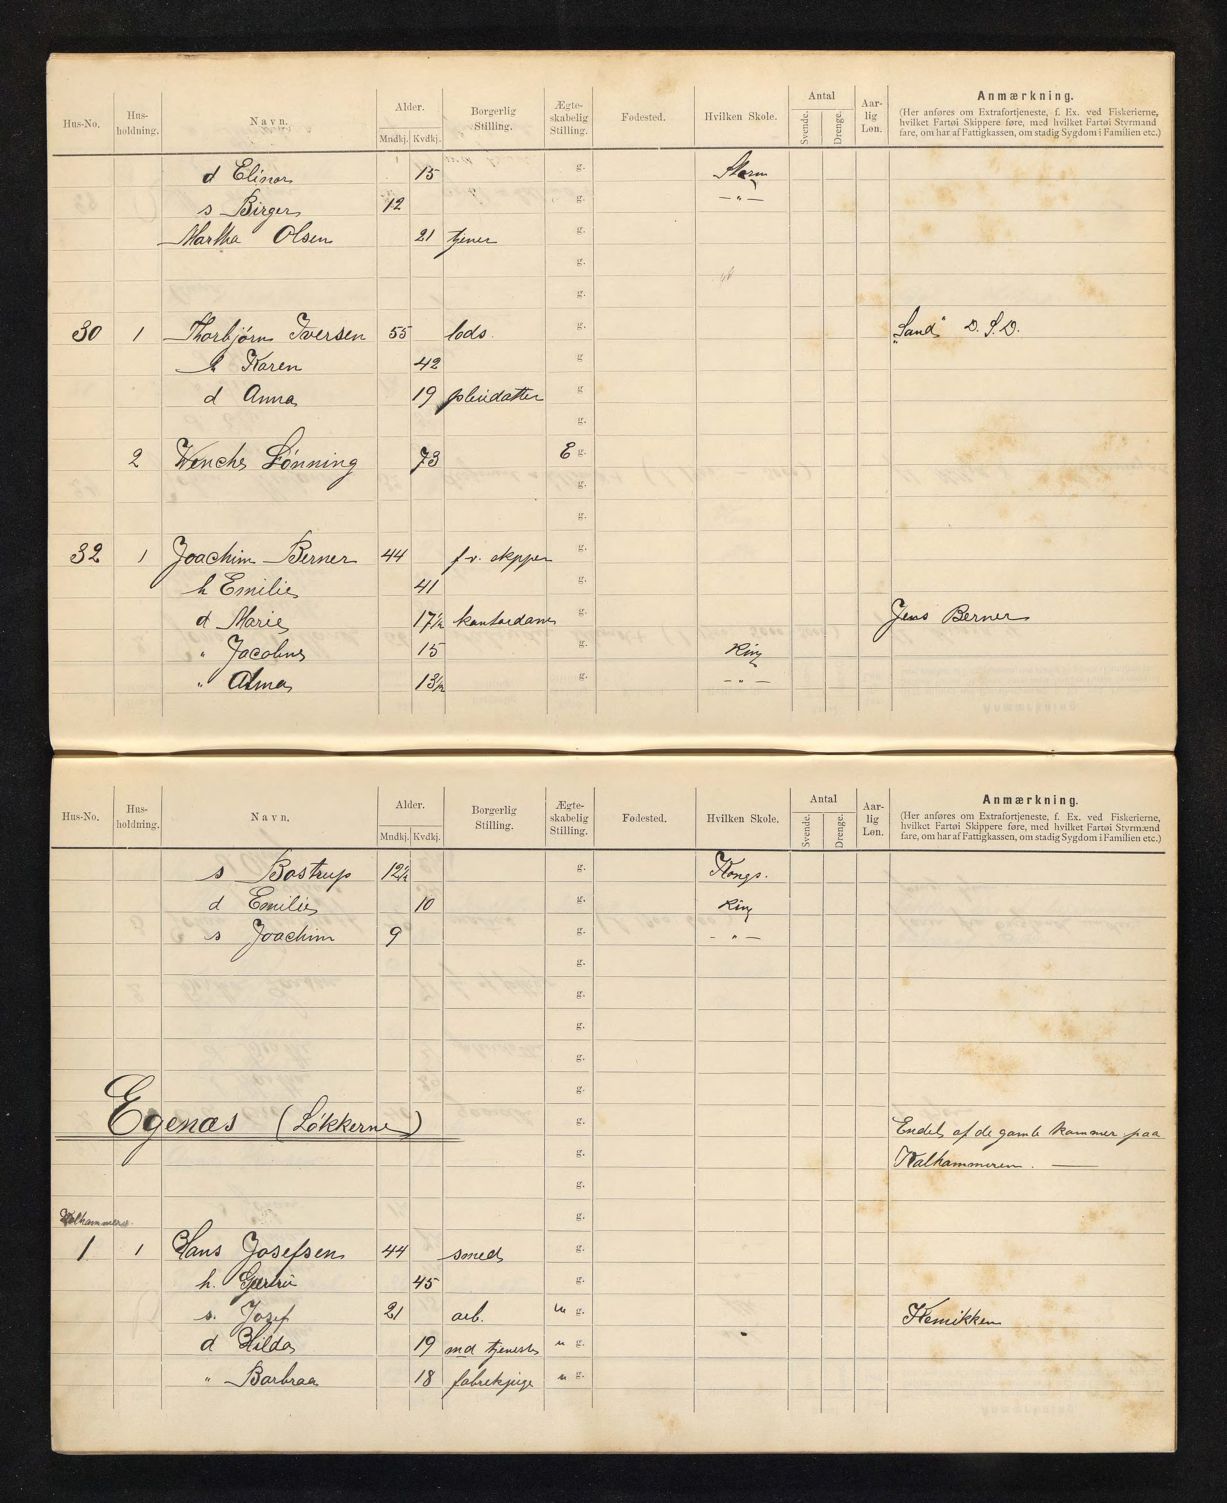 Hus-No. Hus-holdning. Navn. Alder. Mndkj. Kvdkj. Borgerlig Stilling. Ægte-skabelig Stilling. Fødested. Hvilken Skole. Antal Svende. Drenge. Aar-lig Løn. Anmærkning.
(Her anføres om Extrafortjeneste, f. Ex. ved Fiskerierne, hvilket Fartøi Skippere føre, med hvilket Fartøi Styrmænd fare, om har af Fattigkassen, om stadig Sygdom i Familien etc.)
d Elinor 15 g. Storm
s Birger 12 g. — " —
Martha Olsen 21 tjener g.
g.
g.
30 1 Thorbjørn Iversen 55 lods. g. "Sand" D. S. D.
h Karen 42 g
d Anna 19 pleiedatter g
g.
2 Wenche Lønning 73 E g.
g.
g.
32 1 Joachim Berner 44 f.v. skipper g.
h Emilie 41 g.
d Marie 17½ kontordame g. Jens Berner
" Jacobine 15 g. King
" Alma 13½ g. — " —
Hus-No. Hus-holdning. Navn. Alder. Mndkj. Kvdkj. Borgerlig Stilling. Ægte-skabelig Stilling. Fødested. Hvilken Skole. Antal Svende. Drenge. Aar-lig Løn. Anmærkning.
(Her anføres om Extrafortjeneste, f. Ex. ved Fiskerierne, hvilket Fartøi Skippere føre, med hvilket Fartøi Styrmænd fare, om har af Fattigkassen, om stadig Sygdom i Familien etc.)
s Bostrup 12½ g. Kongs.
d Emilie 10 g. King
s Joachim 9 g. — " —
g.
g.
g.
g.
g.
Egenæs (Løkkerne) g. Endel af de gamle kommer paa
g. Kalhammeren. —
g.
Kalhammeren. g.
1 1 Hans Josefsen 44 smed g.
h. Gurine 45 g.
s. Josef 21 arb. u g. Kemikken
d Hilda 19 md tjeneste u g.
" Barbraa 18 fabrekpige u g.